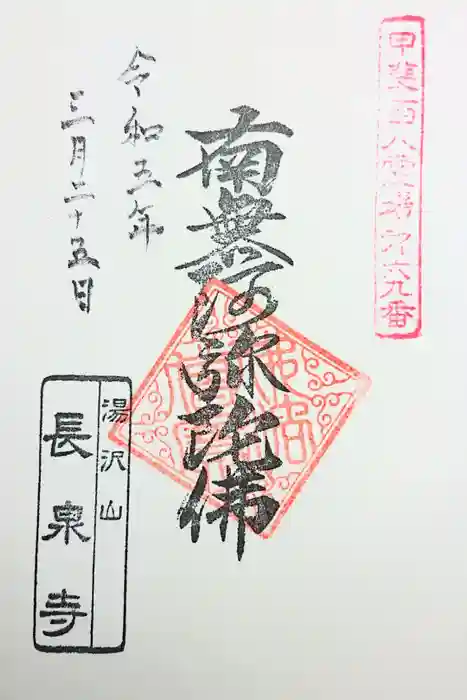 甲斐百八霊場第六九番
南無阿弥陀佛
令和五年
三月二十五日
湯沢山
長泉寺